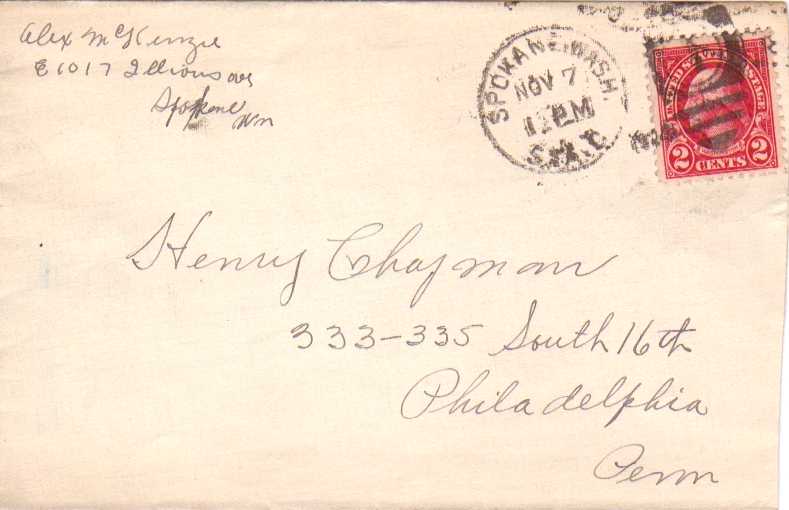 Alex McKenzie
E1017 Illinois ave
Spokane
Wn
SPOKANE, WASH.
NOV 7
12 PM
STA. C
UNITED STATES POSTAGE
2 CENTS 2
Henry Chapman
333-335 South 16th
Philadelphia
Penn